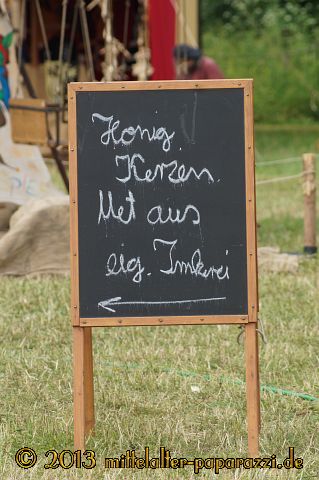 Honig
Kerzen
Met aus
eig. Imkerei
© 2013 mittelalter-paparazzi.de